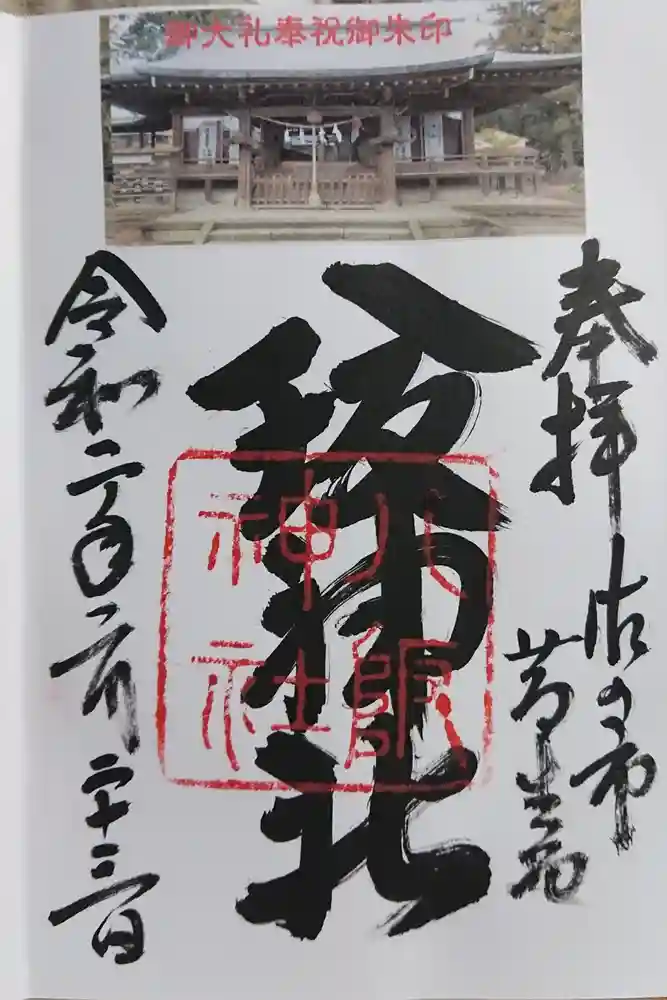 御大礼奉祝御朱印
奉拝
佐の市
八坂神社
八阪
神社
令和二年二月二十三日